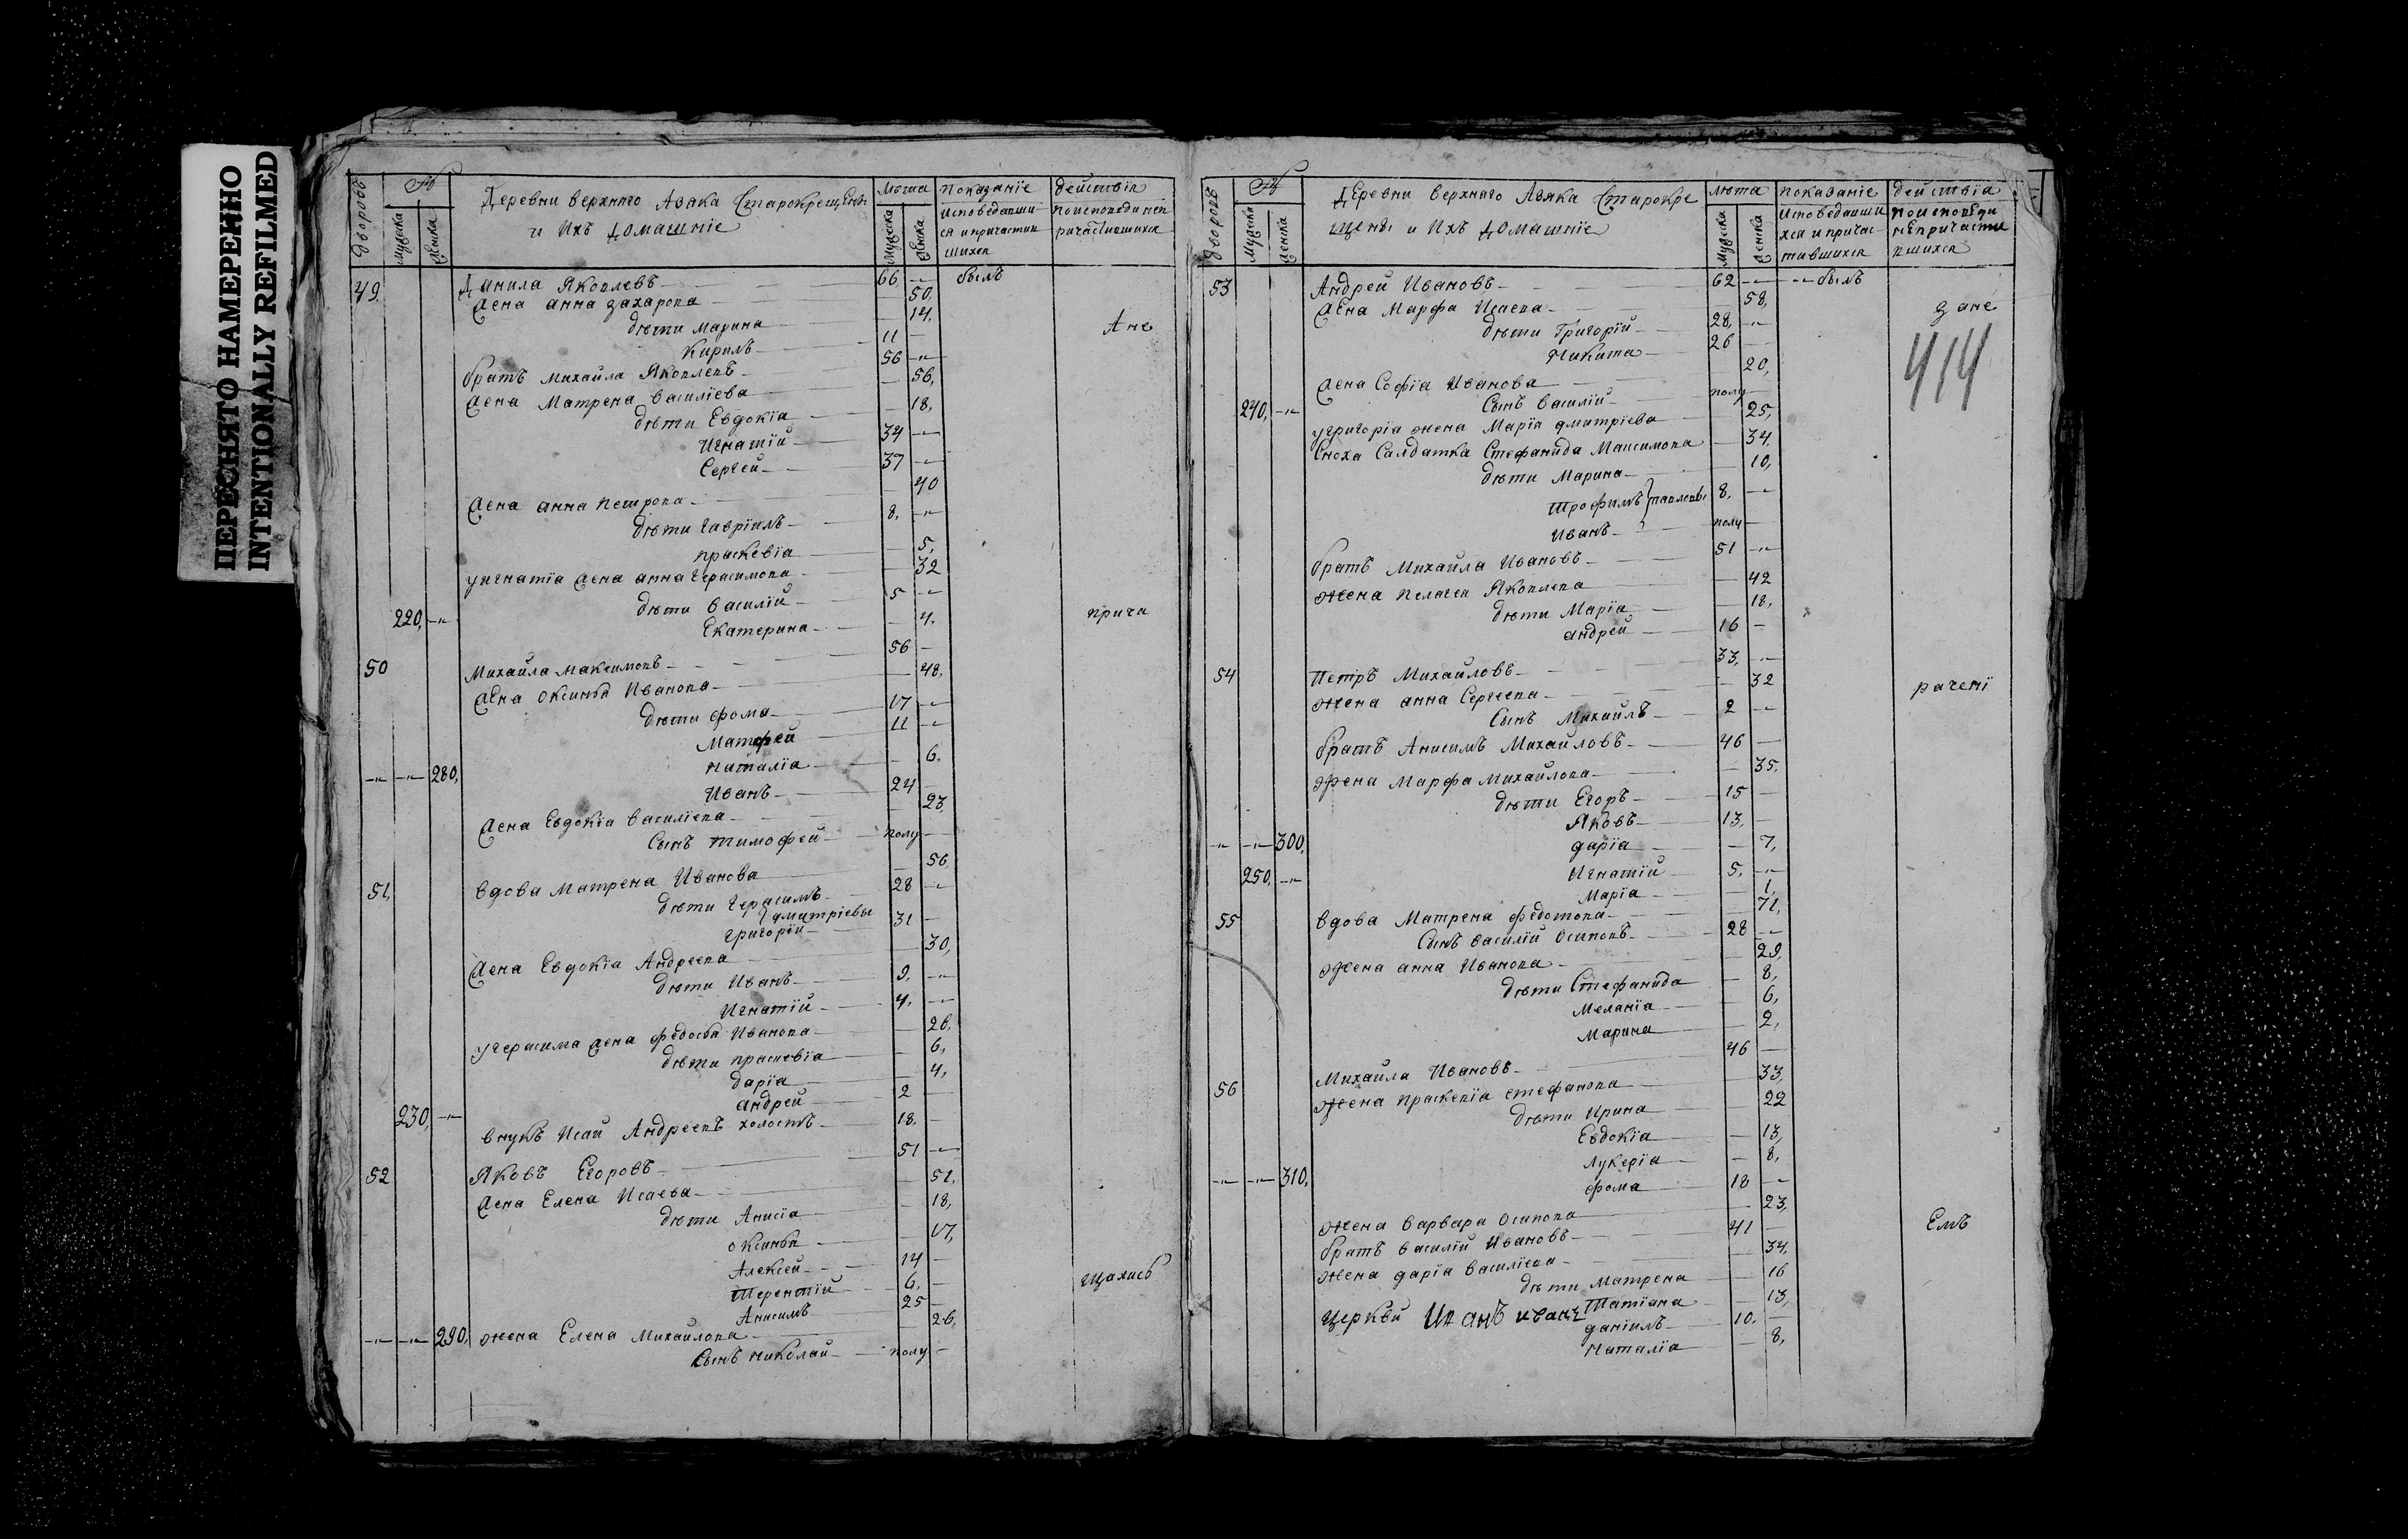 ПЕРЕСНЯТО НАМЕРЕННО
INTENTIONALLY REFILMED
дворовъ
мужеска
женска
Деревни верхняго Азяка Старокрещены
и Ихъ домашніе
лѣта
мужеска
женска
показаніе
дѣйствія
Исповѣдавши-
ся и причастив
шихся
поисповѣди неп
ричастившихся
49 Данила Яковлевъ 66 -"- былъ
жена анна захарова 50,
дѣти марина 14,
Кирилъ 11 А не
братъ михайла Яковлевъ 56 -"-
жена Матрена василіева 56,
дѣти Евдокіа 18,
Игнатій 34 -"-
Сергей 37 -"-
жена анна петрова 40
дѣти гавріилъ 8, -"-
праскевіа 5,
уигнатіа жена анна герасимова 32
дѣти василій 5 -"-
220, -"- Екатерина 4, прича
50 Михайла максимовъ 56
жена оксинья Иванова 48,
дѣти фома 17 -"-
Матфей 11 -"-
наталіа 6,
-"- -"- 280, Иванъ 24
жена Евдокіа василіева 23,
Сынъ тимофей полу
51, вдова матрена Иванова 56,
дѣти герасимъ 28 -"-
григорій } дмитріевы 31
жена Евдокіа Андреева 30,
дѣти Иванъ 9, -"-
Игнатій 4, -"-
угерасима жена федосья Иванова 26,
дѣти праскевіа 6,
даріа 4,
андрей 2
230, -"- внукъ Исай Андреевъ холостъ 18,
52 Яковъ Егоровъ 51 -"-
жена Елена Исаева 51,
дѣти Анисіа 18,
оксинья 17,
Алексей 14
Терентій 6, щались
Анисимъ 25
-"- -"- 290, жена Елена Михайлова 26,
Сынъ николай полу
дворовъ
мужеска
женска
Деревни верхняго Азяка Старокре
щены и Ихъ домашніе
лѣта
мужеска
женска
показаніе
дѣйствіа
Исповѣдавши
хся и причас-
тившихся
поисповѣди
непричасти
вшихся
53 Андрей Ивановъ 62 -"- былъ
жена Марфа Исаева 58, з а не
дѣти Григорій 28, -"-
Никита 26
414
жена Софіа Иванова 20,
240, -"- Сынъ василій полу
угригоріа жена Маріа дмитріева 25,
Сноха Салдатка Стефанида Максимова 34,
дѣти Марина 10,
трофимъ } павловы 8, -"-
иванъ полу
братъ Михайла Ивановъ 51 -"-
жена пелагея Яковлева 42
дѣти Маріа 18,
андрей 16
54 Петръ Михайловъ 33, -"-
жена анна Сергеева 32 рачені
Сынъ Михайлъ 2 -"-
братъ Анисимъ Михайловъ 46
жена Марфа михайлова 35,
дѣти Егоръ 15
Яковъ 13,
-"- -"- 300, даріа 7,
250, -"- Игнатій 5, -"-
Маріа 1,
55 вдова Матрена федотова 71,
Сынъ василій Осиповъ 28 -"-
жена анна Иванова 29,
дѣти Стефанида 8,
Меланіа 6,
Марина 2,
56 Михайла Ивановъ 46
жена праскевіа стефанова 33,
дѣти Ирина 22
Евдокіа 13,
лукеріа 8,
-"- -"- 310, фома 18 -"-
жена варвара Осипова 23, Емъ
братъ василій Ивановъ 41
жена даріа василіева 34,
дѣти Матрена 16
Церкви Иванъ иванъ Татіана 13,
даніилъ 10,
Наталіа 8,